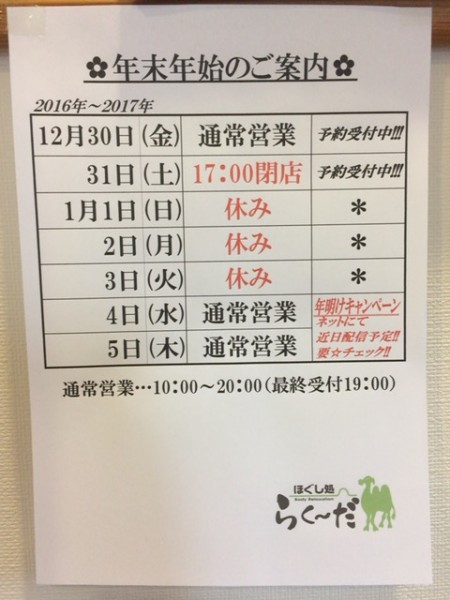 ✿年末年始のご案内✿
2016年～2017年
12月30日(金) 通常営業 予約受付中!!!
31日(土) 17:00閉店 予約受付中!!!
1月1日(日) 休み *
2日(月) 休み *
3日(火) 休み *
4日(水) 通常営業 年明けキャンペーン
ネットにて
近日配信予定!!
5日(木) 通常営業 要☆チェック!!
通常営業…10:00～20:00(最終受付19:00)
ほぐし処
らく～だ